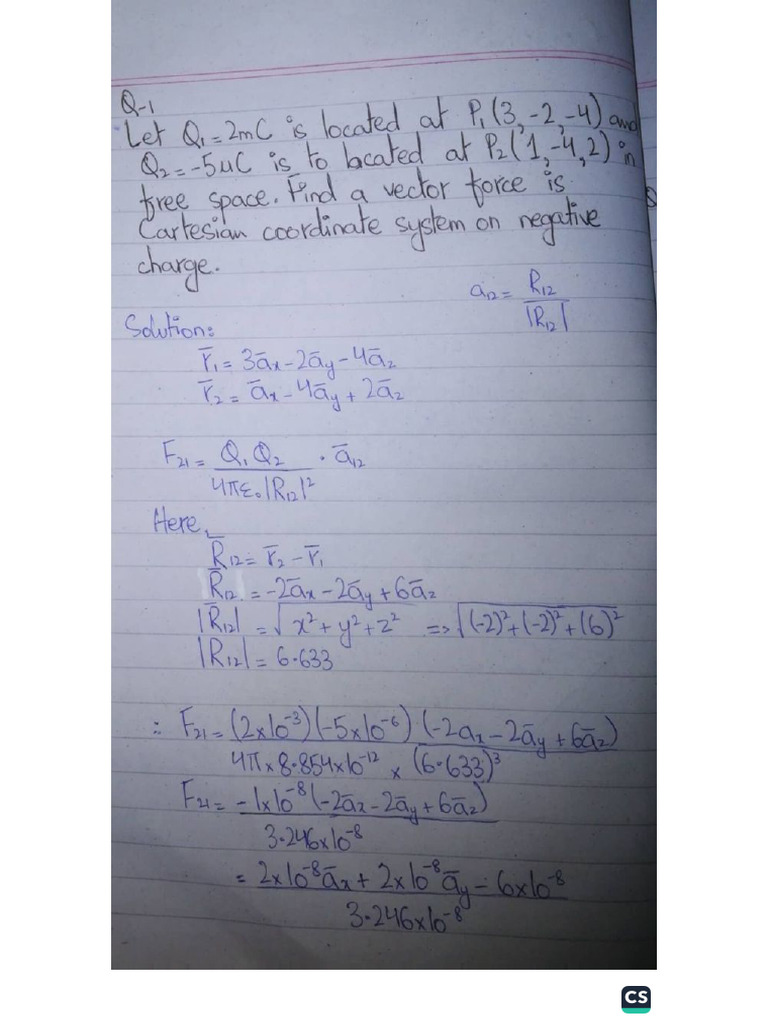 Q-1
Let Q₁=2mC is located at P₁(3,-2,-4) and
Q₂=-5uC is to located at P₂(1,-4,2) in
free space. Find a vector force is
Cartesian coordinate system on negative
charge.
a₁₂= R₁₂/|R₁₂|
Solution:
r̄₁= 3āx-2āy-4āz
r̄₂= āx-4āy+2āz
F₂₁= Q₁Q₂/4πε₀|R₁₂|² · ā₁₂
Here,
R̄₁₂= r̄₂-r̄₁
R̄₁₂=-2āx-2āy+6āz
|R̄₁₂| =√x²+y²+z² => √(-2)²+(-2)²+(6)²
|R₁₂|= 6.633
∴ F₂₁=(2x10⁻³)(-5x10⁻⁶)(-2ax-2āy+6āz)
4πx8.854x10⁻¹² x (6.633)³
F₂₁= -1x10⁻⁸(-2āx-2āy+6āz)
3.246x10⁻⁸
= 2x10⁻⁸āx+2x10⁻⁸āy-6x10⁻⁸
3.246x10⁻⁸
CS